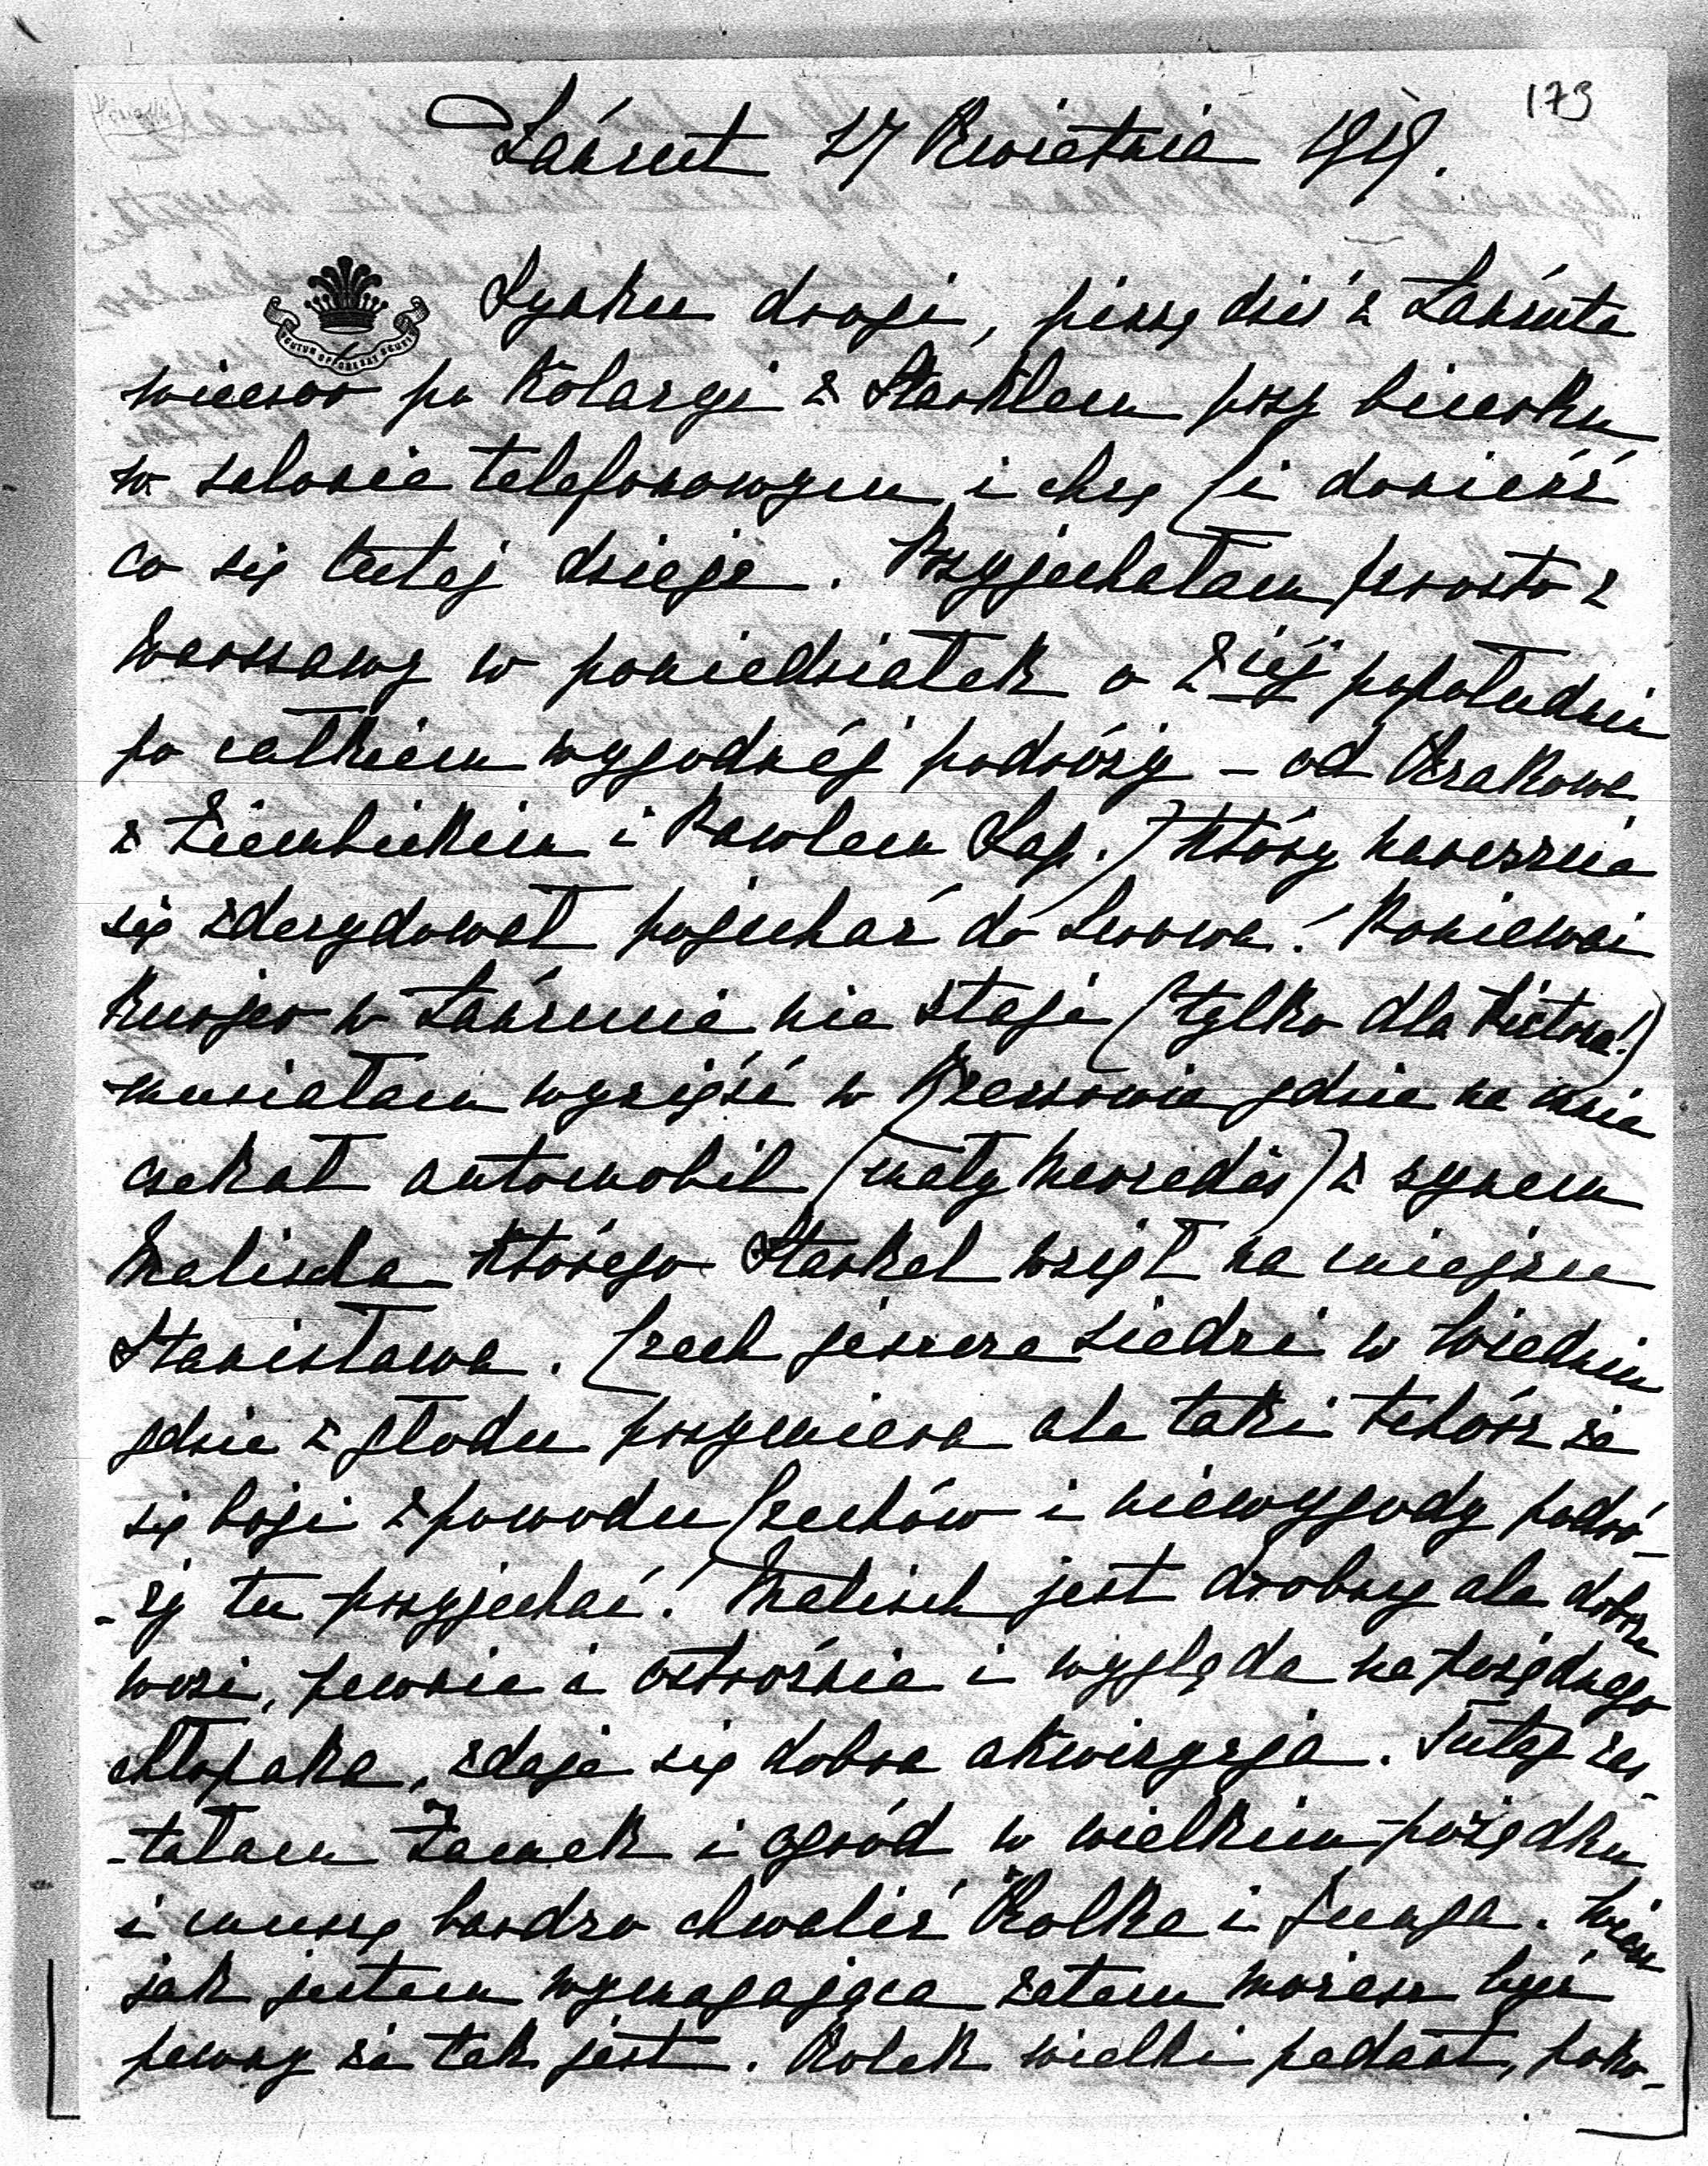 173
Łańcut 27 Kwietnia 1919.
Synku drogi, piszę dziś z Łańcuta
wieczór po Kolacyi z Staśklem przy biurku
w salonie telefonowym i chcę Ci donieść
co się tutaj dzieje. Przyjechałam prosto z
Warszawy w poniedziałek o 2iéj popołudniu
po całkiem wygodnéj podróży – od Krakowa
z Ziembickim i Pawłem Sap. który nareszcie
się zdecydował pojechać do Lwowa! Ponieważ
Kurjer w Łańcucie nie staje (tylko dla Wiktora!)
musiałam wysiąść w Rzeszowie gdzie na mnie
czekał automobil (mały Mercedes) z synem
Malischa którego Staśkel wziął na miejsce
Stanisława. Czech jeszcze siedzi w Wiedniu
gdzie z głodu przymiera ale taki tchórz że
się boji z powodu Czechów i niewygody podró-
-ży tu przyjechać! Malisch jest drobny ale dobrze
wozi, pewnie i ostrożnie i wygląda na porządnego
chłopaka, zdaje się dobra akwizycja. Tutaj zas-
-tałam Zamek i ogród w wielkim porządku
i muszę bardzo chwalić Rolka i Junga. Wiesz
jak jestem wymagająca zatem możesz być
pewny że tak jest. Rolek wielki pedant, poko-